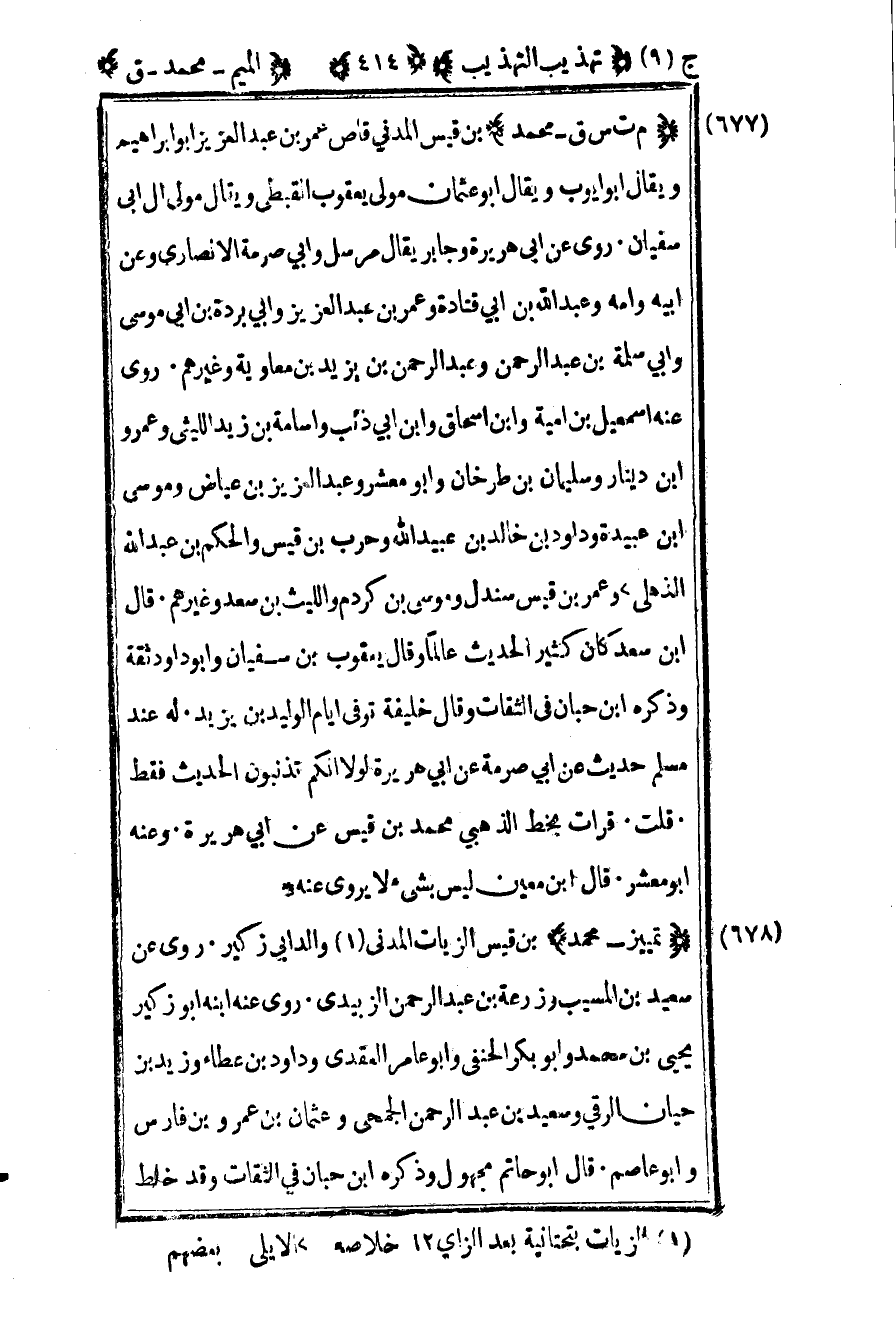 ج (٩) ﴿ تهذيب التهذيب ﴾ ﴿ ٤١٤ ﴾ ﴿ الميم ـ محمد ـ ق ﴾
(٦٧٧) ﴿ م ت س ق ـ محمد ﴾ بن قيس المدني قاص عمر بن عبد العزيز ابو ابراهيم
ويقال ابو ايوب ويقال ابو عثمان مولى يعقوب القبطي ويقال مولى ال ابي
سفيان . روى عن ابي هريرة وجابر يقال مرسل وابي صرمة الانصاري وعن
ابيه وامه وعبد الله بن ابي قتادة وعمر بن عبد العزيز وابي بردة بن ابي موسى
وابي سلمة بن عبد الرحمن وعبد الرحمن بن يزيد بن معاوية وغيرهم . روى
عنه اسمعيل بن امية وابن اسحاق وابن ابي ذئب واسامة بن زيد الليثي وعمرو
ابن دينار وسليمان بن طرخان وابو معشر وعبد العزيز بن عياض وموسى
ابن عبيدة وداود بن خالد بن عبيد الله وحرب بن قيس والحكم بن عبد الله
الذهلي > وعمر بن قيس سندل وموسى بن كردم والليث بن سعد وغيرهم . قال
ابن سعد كان كثير الحديث عالماً وقال يعقوب بن سفيان وابو داود ثقة
وذكره ابن حبان في الثقات وقال خليفة توفى ايام الوليد بن يزيد . له عند
مسلم حديث عن ابي صرمة عن ابي هريرة لولا انكم تذنبون الحديث فقط
. قلت . قرات بخط الذهبي محمد بن قيس عن ابي هريرة . وعنه
ابو معشر . قال ابن معين ليس بشيء لا يروى عنه
(٦٧٨) ﴿ تمييز ـ محمد ﴾ بن قيس الزيات المدني (١) والد ابي زكير . روى عن
سعيد بن المسيب وزرعة بن عبد الرحمن الزبيدي . روى عنه ابنه ابو زكير
يحيى بن محمد وابو بكر الحنفي وابو عامر العقدي وداود بن عطاء وزيد بن
حيان الرقي وسعيد بن عبد الرحمن الجمحي وعثمان بن عمرو بن فارس
وابو عاصم . قال ابو حاتم مجهول وذكره ابن حبان في الثقات وقد خلط
(١) الزيات بتحتانية بعد الزاي ١٢ خلاصه > الايلي بعضهم